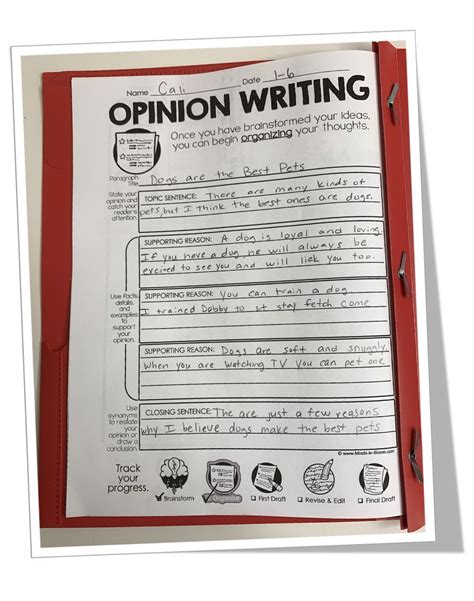 Name Cali Date 1-6
OPINION WRITING
Once you have brainstormed your ideas,
you can begin organizing your thoughts.
Paragraph
Title: Dogs are the Best Pets
State your
opinion and
catch your
reader's
attention.
TOPIC SENTENCE: There are many kinds of
pets, but I think the best ones are dogs.
Use facts,
details,
and
examples
to support
your
opinion.
SUPPORTING REASON: A dog is loyal and loving.
If you have a dog he will always be
excited to see you and will lick you too.
SUPPORTING REASON: You can train a dog.
I trained Dobby to sit stay fetch come
SUPPORTING REASON: Dogs are soft and snuggly.
When you are watching TV you can pet one
Use
synonyms
to restate
your
opinion or
draw a
conclusion.
CLOSING SENTENCE: The are just a few reasons
why I believe dogs make the best pets
©www.Minds-in-Bloom.com
Track
your
progress.
Brainstorm
Organize
First Draft
Revise & Edit
Final Draft